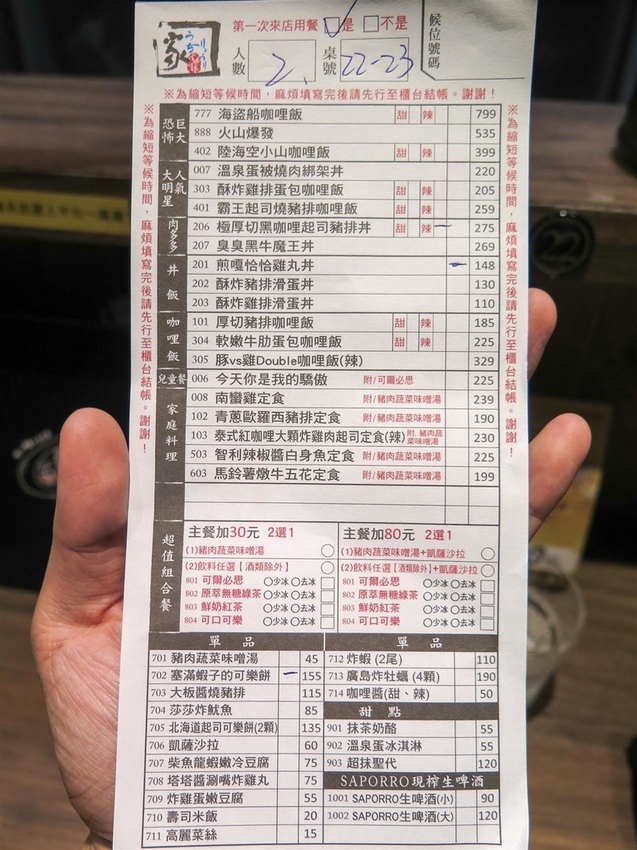 家
第一次來店用餐 是 不是
人數 2. 桌號 22-23
候位號碼
※為縮短等候時間，麻煩填寫完後請先行至櫃台結帳。謝謝！
※為縮短等候時間，麻煩填寫完後請先行至櫃台結帳。謝謝！
※為縮短等候時間，麻煩填寫完後請先行至櫃台結帳。謝謝！
恐怖巨大
777 海盜船咖哩飯 甜 辣 799
888 火山爆發 535
402 陸海空小山咖哩飯 甜 辣 399
大明星人氣
007 溫泉蛋被燒肉綁架丼 220
303 酥炸雞排蛋包咖哩飯 甜 辣 205
401 霸王起司燒豬排咖哩飯 甜 辣 259
肉多多
206 極厚切黑咖哩起司豬排丼 甜 辣 275
207 臭臭黑牛魔王丼 269
丼飯
201 煎嘎恰恰雞丸丼 148
202 酥炸豬排滑蛋丼 130
203 酥炸雞排滑蛋丼 110
咖哩飯
101 厚切豬排咖哩飯 甜 辣 185
304 軟嫩牛肋蛋包咖哩飯 甜 辣 225
305 豚vs雞Double咖哩飯(辣) 329
兒童餐
006 今天你是我的驕傲 附/可爾必思 225
家庭料理
008 南蠻雞定食 附/豬肉蔬菜味噌湯 239
102 青蔥歐羅西豬排定食 附/豬肉蔬菜味噌湯 190
103 泰式紅咖哩大顆炸雞肉起司定食(辣) 附/豬肉蔬菜味噌湯 230
503 智利辣椒醬白身魚定食 附/豬肉蔬菜味噌湯 225
603 馬鈴薯燉牛五花定食 附/豬肉蔬菜味噌湯 199
超值組合餐
主餐加30元 2選1
(1)豬肉蔬菜味噌湯
(2)飲料任選【酒類除外】
801 可爾必思 少冰 去冰
802 原萃無糖綠茶 少冰 去冰
803 鮮奶紅茶 少冰 去冰
804 可口可樂 少冰 去冰
主餐加80元 2選1
(1)豬肉蔬菜味噌湯+凱薩沙拉
(2)飲料任選【酒類除外】+凱薩沙拉
801 可爾必思 少冰 去冰
802 原萃無糖綠茶 少冰 去冰
803 鮮奶紅茶 少冰 去冰
804 可口可樂 少冰 去冰
單品
701 豬肉蔬菜味噌湯 45
702 塞滿蝦子的可樂餅 155
703 大板醬燒豬排 115
704 莎莎炸魷魚 85
705 北海道起司可樂餅(2顆) 135
706 凱薩沙拉 60
707 柴魚龍蝦嫩冷豆腐 75
708 塔塔醬涮嘴炸雞丸 75
709 炸雞蛋嫩豆腐 55
710 壽司米飯 20
711 高麗菜絲 15
單品
712 炸蝦 (2尾) 110
713 廣島炸牡蠣 (4顆) 190
714 咖哩醬(甜、辣) 50
甜點
901 抹茶奶酪 55
902 溫泉蛋冰淇淋 55
903 超抹聖代 120
SAPORRO現榨生啤酒
1001 SAPORRO生啤酒(小) 90
1002 SAPORRO生啤酒(大) 120
22